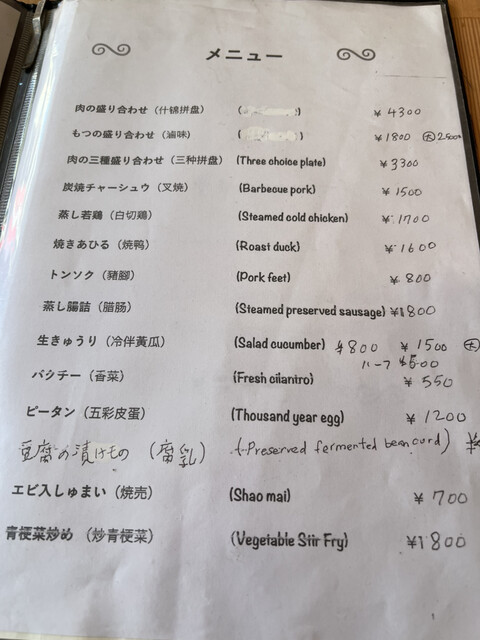 メニュー
肉の盛り合わせ（什锦拼盘） ( ) ¥4300
もつの盛り合わせ（滷味） ( ) ¥1800 大
肉の三種盛り合わせ（三种拼盘） (Three choice plate) ¥3300
炭焼チャーシュウ（叉烧） (Barbecue pork) ¥1500
蒸し若鶏（白切鶏） (Steamed cold chicken) ¥1700
焼きあひる（焼鸭） (Roast duck) ¥1600
トンソク（豬腳） (Pork feet) ¥800
蒸し腸詰（腊肠） (Steamed preserved sausage) ¥1800
生きゅうり（冷伴黃瓜） (Salad cucumber) ¥800 ¥1500 大
ハーフ ¥500
パクチー（香菜） (Fresh cilantro) ¥550
ピータン（五彩皮蛋） (Thousand year egg) ¥1200
豆腐の漬けもの（腐乳） (Preserved fermented bean curd) ¥
エビ入しゅまい（焼売） (Shao mai) ¥700
青梗菜炒め（炒青梗菜） (Vegetable Stir Fry) ¥1800
1